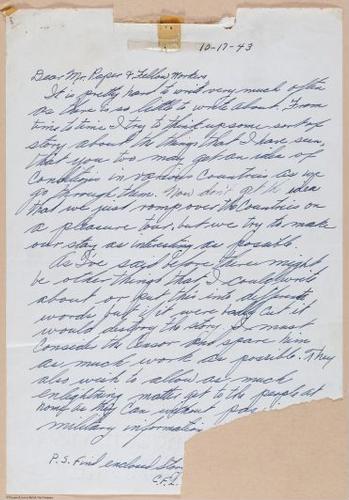 10-17-43
Dear Mr. Raper & Fellow Workers
It is pretty hard to write very much often
as there is so little to write about. From
time to time I try to think up some sort of
story about the things that I have seen,
that you too may get an idea of
Conditions in various Countries as we
go through them. Now don't get the idea
that we just romp over the Countries on
a pleasure tour, but we try to make
our stay as interesting as possible.
As I've said before there might
be other things that I could write
about or put this into different
words but if it were badly Cut it
would destroy the story. I must
Consider the Censor and spare him
as much work as possible. They
also wish to allow as much
enlightening matter get to the people at
home as they Can without
military informatio
P.S. Find enclosed